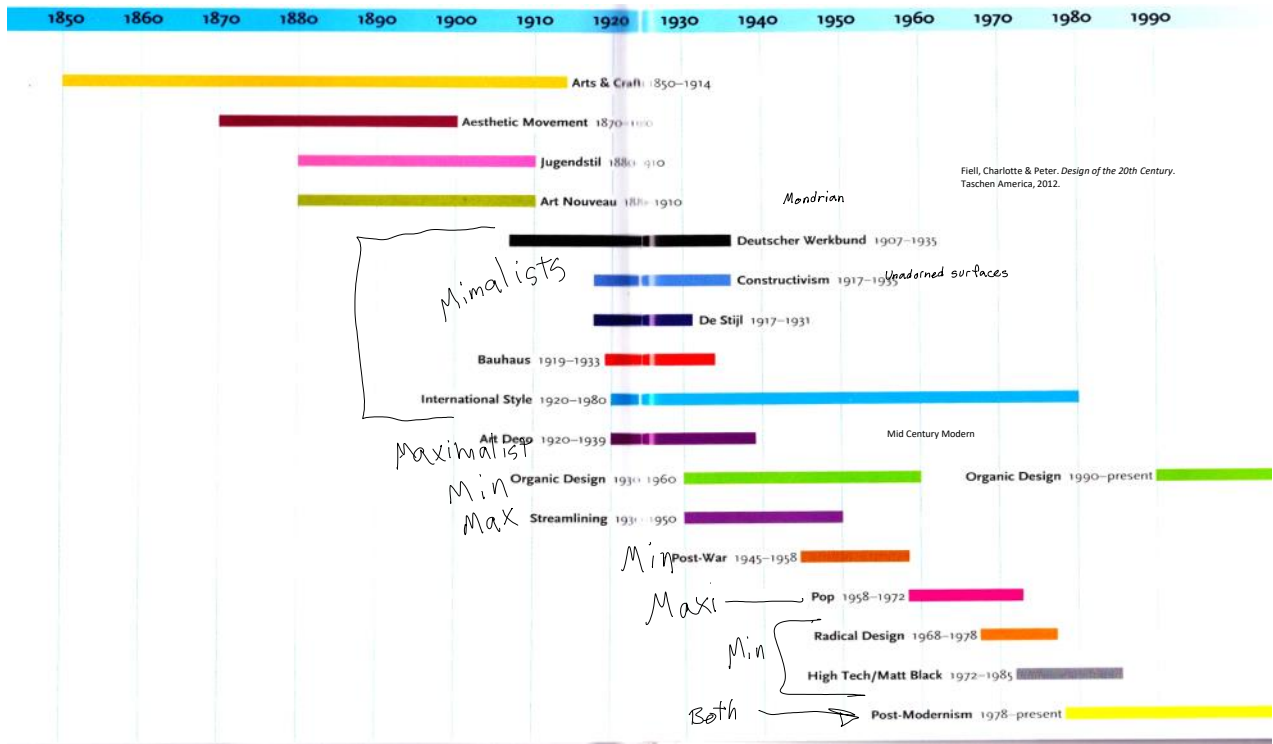 1850 1860 1870 1880 1890 1900 1910 1920 1930 1940 1950 1960 1970 1980 1990
Arts & Craft 1850–1914
Aesthetic Movement 1870–1900
Jugendstil 1880 910
Fiell, Charlotte & Peter. Design of the 20th Century.
Taschen America, 2012.
Art Nouveau 188 1910
Mondrian
Deutscher Werkbund 1907–1935
Mimalists
Constructivism 1917–1935
Unadorned surfaces
De Stijl 1917–1931
Bauhaus 1919–1933
International Style 1920–1980
Art Deco 1920–1939
Mid Century Modern
Maximalist
Min
Organic Design 1930 1960
Organic Design 1990–present
Max
Streamlining 193 1950
Min
Post-War 1945–1958
Maxi
Pop 1958–1972
Radical Design 1968–1978
Min
High Tech/Matt Black 1972–1985
Both
Post-Modernism 1978–present